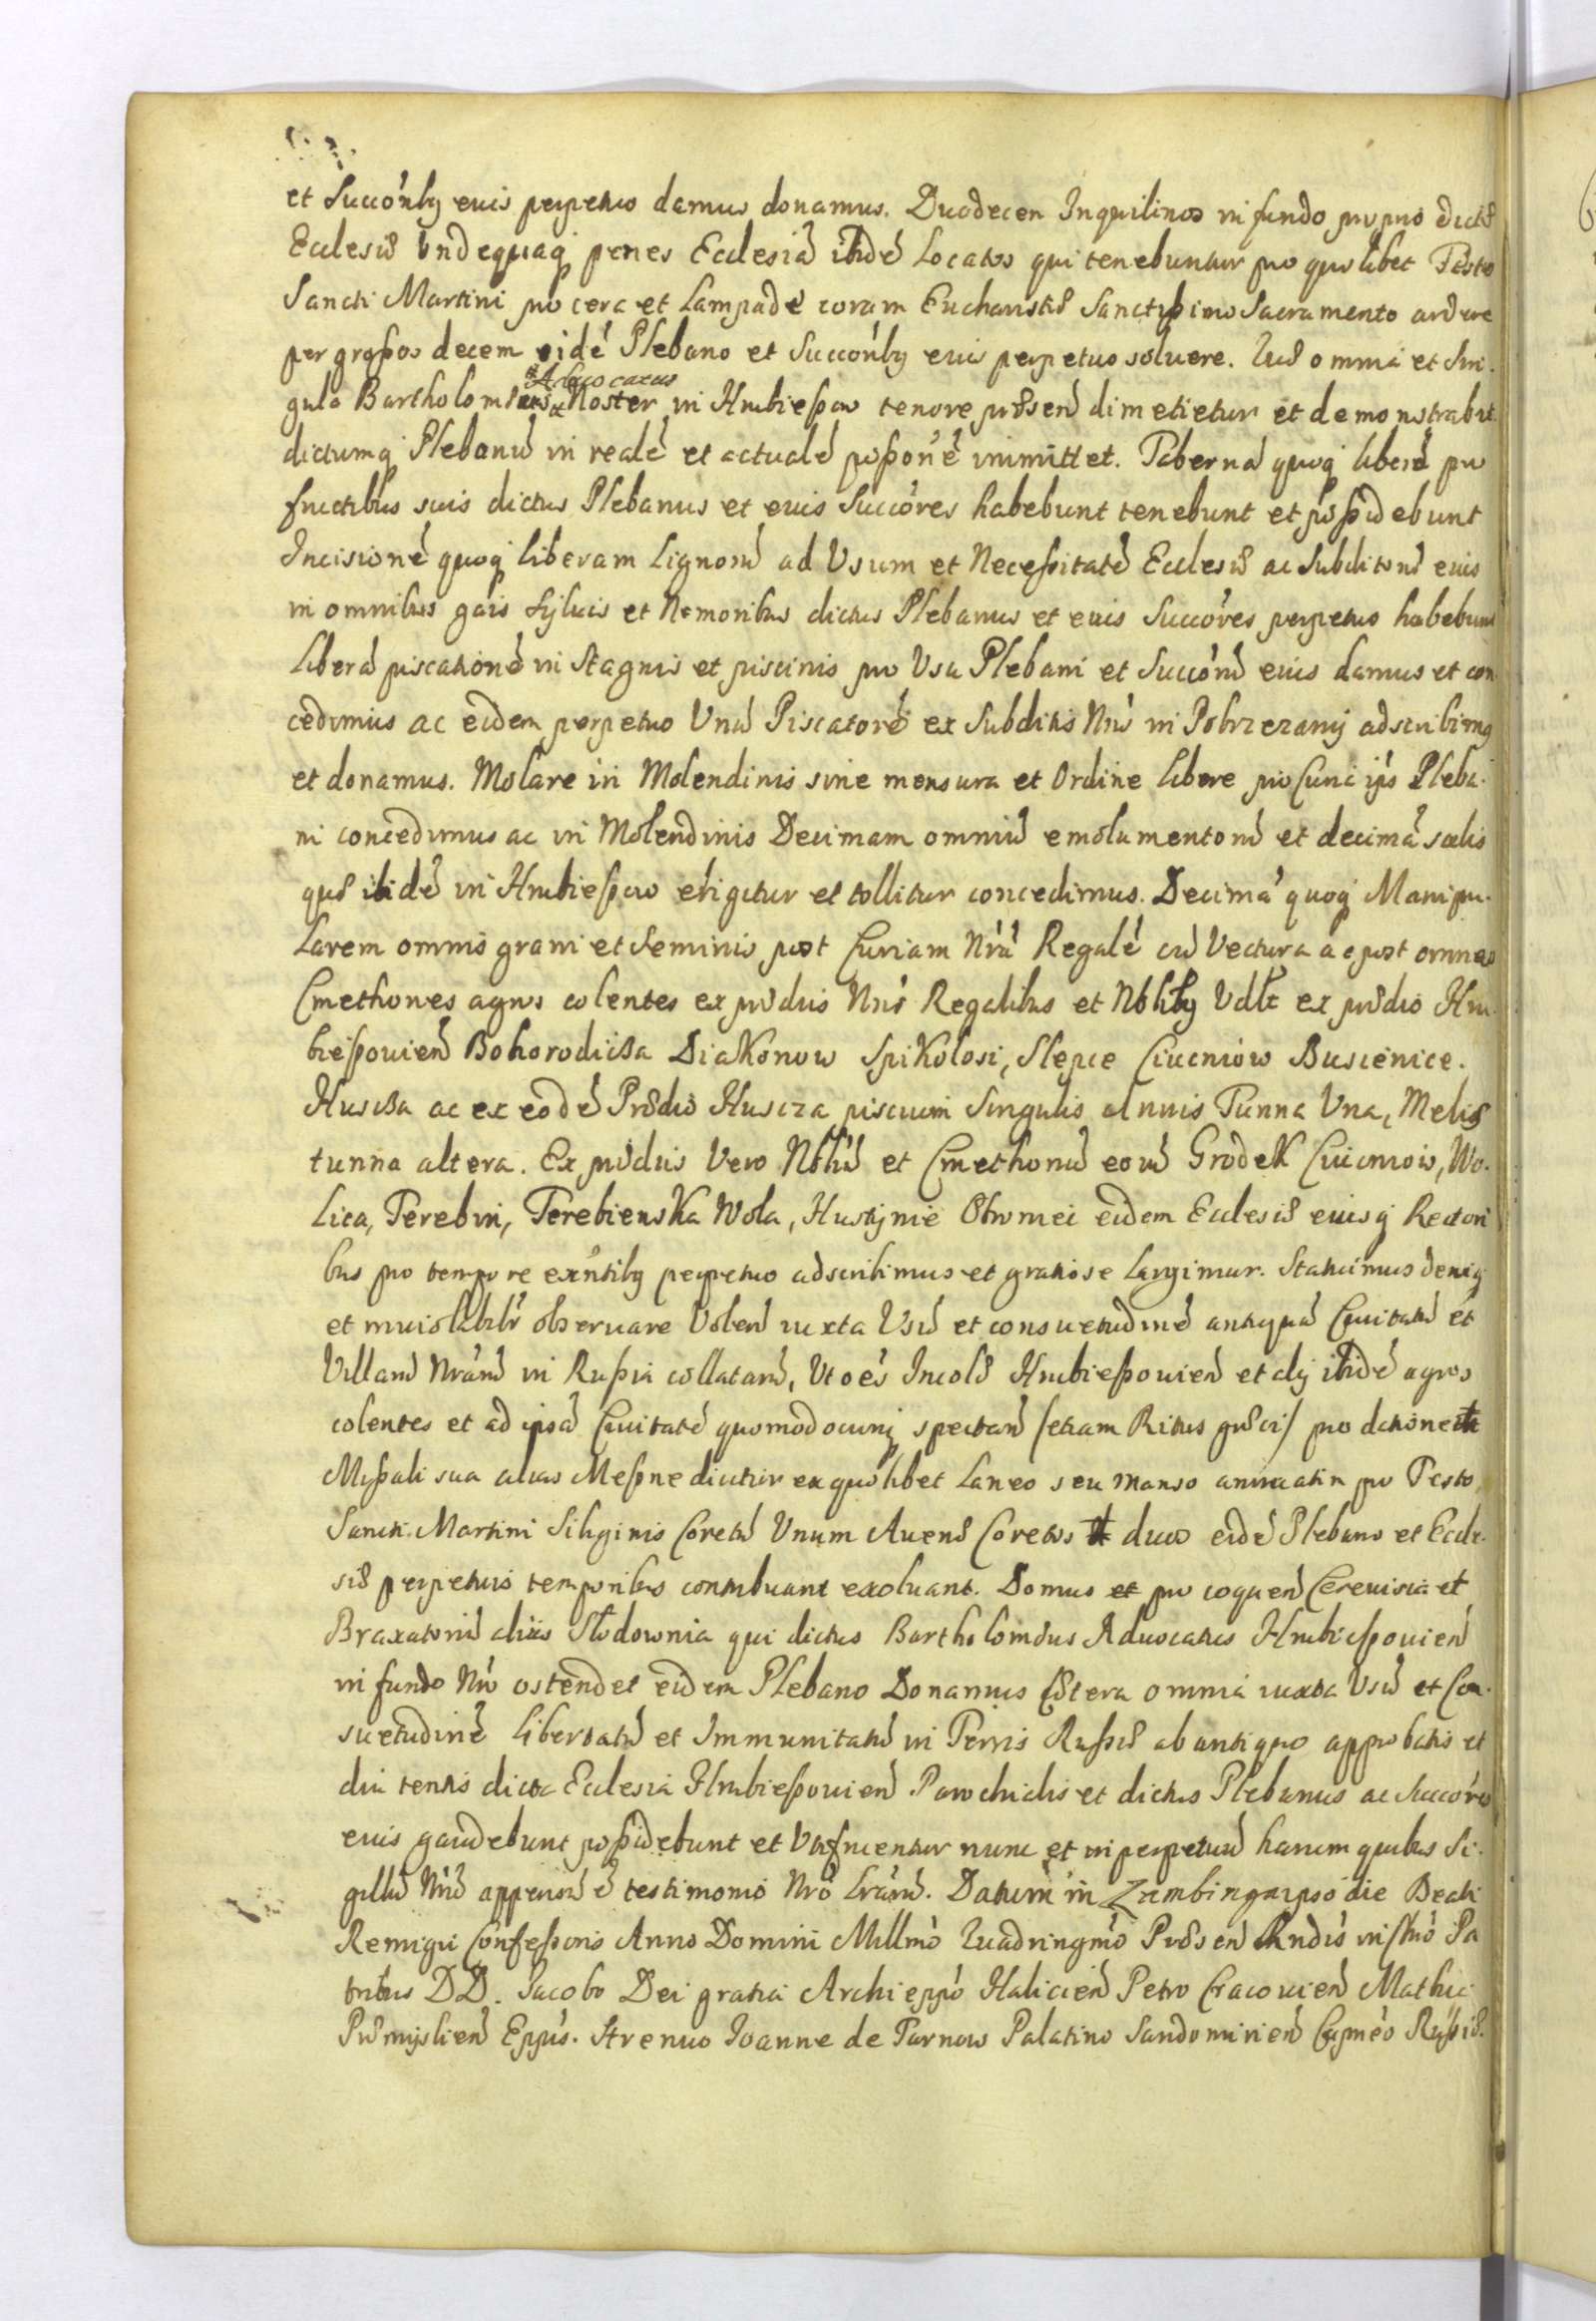 et Succorib9 eius perpetuo damus donamus. Duodecem Inquilinos in fundo proprio dictæ
Ecclesiæ Undequaq penes Ecclesiā ibidē Locatos qui tenebuntur pro quolibet Festo
Sancti Martini pro cera et Lampade coram Eucharistiæ Sanctissimo Sacramento ardere
per grossos decem eidē Plebano et Succorib9 eius perpetuo soluere. Quæ omnia et Sin-
gula Bartholomæus Aduocatus Noster in Hrubieszow tenore præsen dimetietur et demonstrabit
dictumq Plebanū in realē et actualē possonē inmittet. Tabernā quoq liberā pro
fructibus suis dictus Plebanus et eius Succores habebunt tenebunt et possidebunt
Incisionē quoq liberam Lignorū ad Usum et Necessitatē Ecclesiæ ac Subditorū eius
in omnibus gais Syluis et Nemoribus dictus Plebanus et eius Succores perpetuo habebunt
liberā piscationē in Stagnis et piscinis pro Usu Plebani et Succorū eius damus et con
cedimus ac eidem perpetuo Unū Piscatorē ex Subditis Nris in Pobrzezany adscribimq
et donamus. Molare in Molendinis sine mensura et Ordine libere pro Curia ips Pleba-
ni concedimus ac in Molendinis Decimam omniū emolumentorū et decimā salis
quæ ibidē in Hrubieszow erigitur et tollitur concedimus. Decimā quoq Manipu-
larem omnis grani et Seminis post Curiam Nrā Regalē cū Vectura ac post omnes
Cmethones agros colentes ex prædiis Nris Regalibus et Nbilib9 Vdlt ex prædio Hru-
bieszouien Bohorodicza Diakonow Spikolosi, Slepce Ciucniow Buscienice.
Huscza ac ex eodē Prædio Huscza piscium Singulis annis Tunna Una, Melis
tunna altera. Ex prædiis Vero Nbliū et Cmethonū eorū Grodek Ciucniow, Wo-
lica, Terebin, Terebienska Wola, Hustynie Obromei eidem Ecclesiæ eiusq Rectori
bus pro tempore exntib9 perpetuo adscribimus et gratiose largimur. Statuimus deniq
et inuiolabilr obseruare Volen iuxta Usū et consuetudinē antiquā Ciuitatū et
Villarū Nrarū in Russia collatarū, Ut oes Incolæ Hrubieszouien et alij ibidē agros
colentes et ad ipsā Ciuitatē quomodocunq spectan /etiam Ritus græci/ pro datione
Missali sua alias Meszne dicitur ex quolibet Laneo seu manso annuatim pro Festo
Sancti Martini Siliginis Coretū Unum Auenæ Coretos duos eidē Plebano et Eccle-
siæ perpetuis temporibus contribuant exoluant. Domus et pro coquen Cereuisia et
Braxatoriū alias Słodownia qui dictus Bartholomæus Aduocatus Hrubieszouien
in fundo Nro ostendet eidem Plebano Donamus Cætera omnia iuxta Usū et Con-
suetudinē libertatū et Immunitatū in Terris Russiæ ab antiquo approbatis et
diu tentis dicta Ecclesia Hrubieszouien Parochialis et dictus Plebanus ac Succores
eius gaudebunt possidebunt et Utifruentur nunc et in perpetuū harum quibus Si-
gillū Nrū appensū ē testimonio Nro Lrarū. Datum in ipso die Beati
Remigii Confessoris Anno Domini Millmo Quadringmo Præsen Rndis in Chro Pa
tribus DD. Jacobo Dei gratia Archieppo Halicien Petro Cracouien Mathia
Præmyslien Eppis. Strenuo Joanne de Tarnow Palatino Sandomirien Capneo Russiæ.